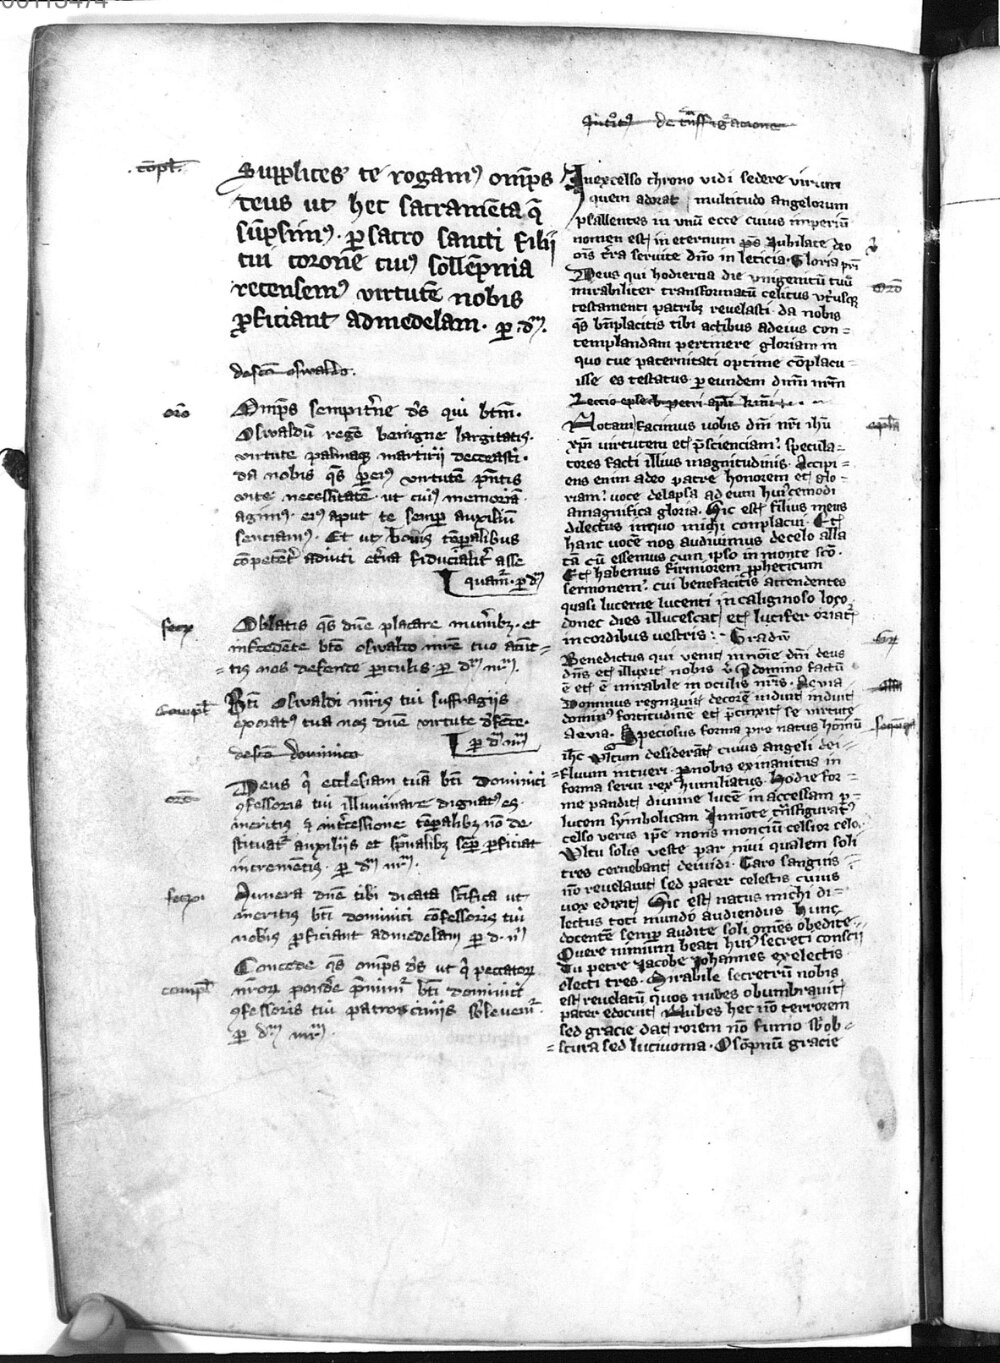 compl̄.
Supplices te rogam⁹ om̄ps
deus ut hec sacramēta q̄
sūpsim⁹ · p̱ sacro sancti filii
tui corone cui⁹ sollēpnia
recensem⁹ virtutē nobis
p̱ficiant admedelam · p̱ · d̄m̄.
de sc̄o oswaldo.
or̄o
Om̄ps sempit̄ne d̄s qui bt̄m̄ ·
Oswaldū regē benigne largitatis ·
virtute palmaq₃ martirii decorasti ·
da nobis q̄s per ei⁹ virtutē p̄ntis
vite necessitatē · ut cui⁹ memoriā
agim⁹ · ei⁹ aput te semp̱ auxiliū
senciam⁹ · Et ut bonis tēp̱alibus
cōpetent̄ adiuti et̄na fiducialit̄ asse
quam̄ · p̱ d̄m̄
secr̄
Oblatis q̄s dn̄e placare mun̄ib₃ · et
int̄cedente bt̄o oswaldo mr̄e tuo a cūc=
=tis nos defende p̱iculis · p̱ d̄m̄ nr̄m̄ ·
Compl̄
Bt̄i Oswaldi mr̄is tui suffragiis
exorat⁹ tua nos dn̄e virtute d̄fēde ·
p̱ d̄m̄ nr̄m̄
de sc̄o dominico
or̄o
Deus q̄ ecclesiam tuā bt̄i dominici
ꝯfessoris tui illuminare dignat⁹ es ·
meritis ⁊ int̄cessione tēp̱alib₃ nō de
stituat̄ auxiliis et sp̄ualib₃ semp̱ p̱ficiat
incrementis · p̱ d̄m̄ nr̄m̄ ·
secr̄
Munera dn̄e tibi dicata sc̄ifica ut
meritis bt̄i dominici cōfessoris tui
nobis p̱ficiant admedelam p̱ · d · n̄
compl̄
Concede q̄s om̄ps d̄s ut q̄ peccator̄
nr̄or̄ pondere p̄mim̄ bt̄i dominici
ꝯfessoris tui patrociniis s̄bleuem̄ ·
p̱ d̄m̄ nr̄m̄ ·
Introit⁹ de tr̄nsfiguracione
In excelso throno vidi sedere virum
quem adorat multitudo angelorum
psallentes in unū ecce cuius imperiū
nomen est in eternum p̄s Jubilate deo
oīs t̄ra seruite dn̄o in leticia · Gloria pr̄i
or̄o
Deus qui hodierna die unigenitū tuū
mirabiliter transformatū celitus utriusq₃
testamenti patrib₃ reuelasti · da nobis
q̄s bn̄placitis tibi actibus ad eius con=
templandam pertinere gloriam in
quo tue paternitati optime cōplacu
isse es testatus p̱ eundem dn̄m nr̄m
Leccio ep̄le b̄ petri apl̄i
epl̄a
Notam facimus uobis dn̄i nr̄i ih̄u
xp̄i virtutem et p̄scienciam · specula=
tores facti illius magnitudinis · Accipi=
ens enim a deo patre honorem et glo=
riam · uoce delapsa ad eum hui⁹cemodi
a magnifica gloria · Hic est filius meus
dilectus in quo michi complacui · Et
hanc uocē nos audiuimus de celo alla
tā cū essemus cum ipso in monte sc̄o ·
Et habemus firmiorem p̱pheticum
sermonem · cui benefacitis attendentes
quasi lucerne lucenti in caliginoso loco
donec dies illucescat et lucifer oriat̄
in cordibus uestris · Gradū
Gr̄
Benedictus qui venit in noīe dn̄i deus
dn̄s et illuxit nobis v̄ A domino factū
ē et ē mirabile in oculis nr̄is · Aeuia ·
Dominus regnauit decorē induit induit
dominus fortitudinē et p̄cinxit se virtute
aeuia · Speciosus forma pre natus hōīnū
ih̄c vultum desiderāt cuius angeli dei=
fluum intueri · p̱ nobis exinanitus in
forma serui rex humiliatus · Hodie for=
me pandit diuine lucē inaccessam p̱
lucem symbolicam In mōte tr̄nsfigurat⁹
celso verus ip̄e mons monciū celsior celo ·
Vltu solis veste par niui qualem soli
tres cernebant deiuidi · Caro sanguis
nō reuelauit sed pater celestis cuius
uox edixit Hic est natus michi di=
lectus toti mundo audiendus hunc
docentē semp̱ audite soli om̄es obedite ·
O uere nimium beati hui⁹ secreti conscii
Tu petre Jacobe Johannes ex electis
electi tres · Mirabile secretū nobis
est reuelatū quos nubes obumbrauit
pater edocuit Nubes hec nō terrorem
sed gracie dat rorem nō fumo s̄b ob=
=scura sed luciuoma · O sōpnū gracie